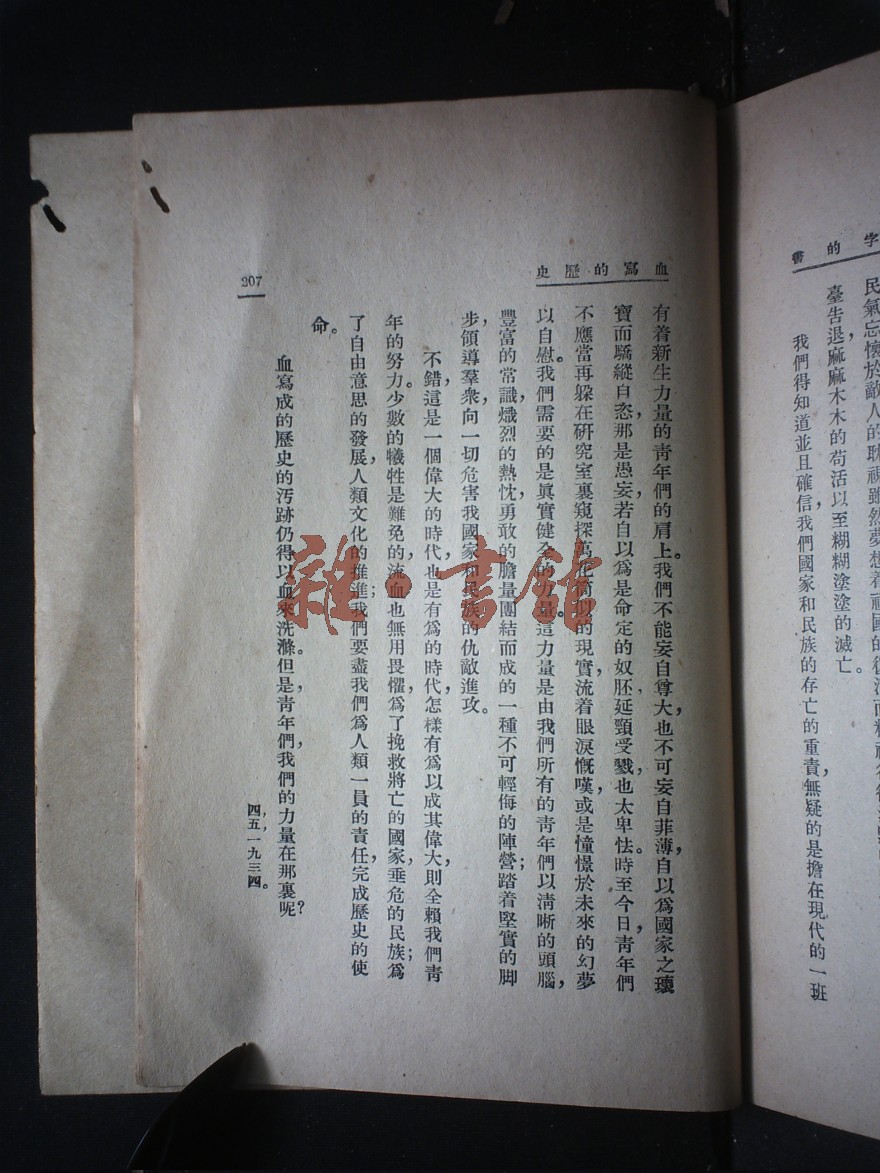 字的書
民氣忘懷於敵人的耽視雖然夢想着祖國的復活而
臺告退，麻麻木木的苟活以至糊糊塗塗的滅亡。
我們得知道並且確信，我們國家和民族的存亡的重責，無疑的是擔在現代的一班
血寫的歷史
有着新生力量的青年們的肩上。我們不能妄自尊大，也不可妄自菲薄，自以爲國家之瓌
寶而驕縱自恣，那是愚妄；若自以爲是命定的奴胚，延頸受戮，也太卑怯。時至今日，青年們
不應當再躲在研究室裏窺探萬花筒似的現實，流着眼淚慨嘆，或是憧憬於未來的幻夢
以自慰。我們需要的是眞實健全的力量。這力量是由我們所有的青年們以清晰的頭腦，
豐富的常識，熾烈的熱忱，勇敢的膽量團結而成的一種不可輕侮的陣營；踏着堅實的脚
步，領導羣衆，向一切危害我國家和民族的仇敵進攻。
不錯，這是一個偉大的時代，也是有爲的時代，怎樣有爲以成其偉大，則全賴我們青
年的努力。少數的犧牲是難免的，流血也無用畏懼，爲了挽救將亡的國家，垂危的民族；爲
了自由意思的發展，人類文化的推進；我們要盡我們爲人類一員的責任，完成歷史的使
命。
血寫成的歷史的汚跡仍得以血來洗滌。但是，青年們，我們的力量在那裏呢？
四，五，一九三四。
207
雜·書館